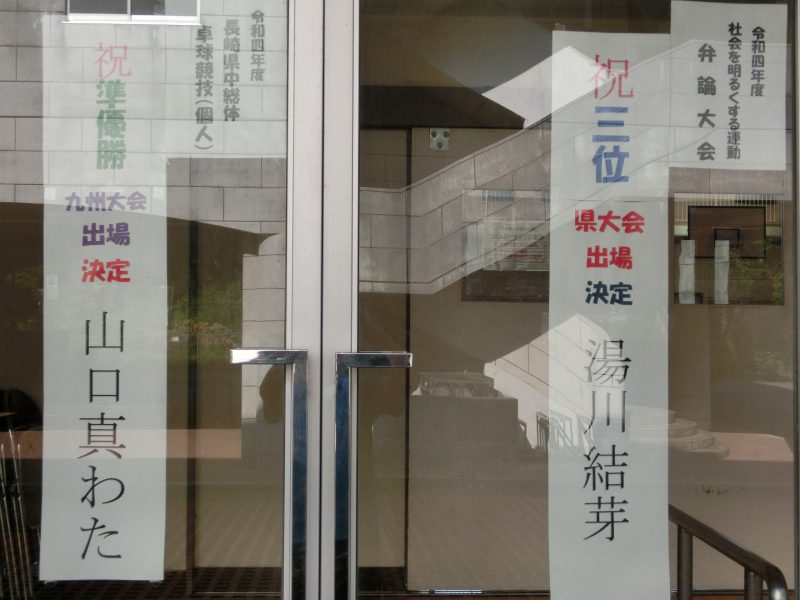 令和四年度
社会を明るくする運動
弁論大会
祝
三位
県大会
出場
決定
湯川結芽
令和四年度
長崎県中総体
卓球競技(個人)
祝
準優勝
九州大会
出場
決定
山口真わた